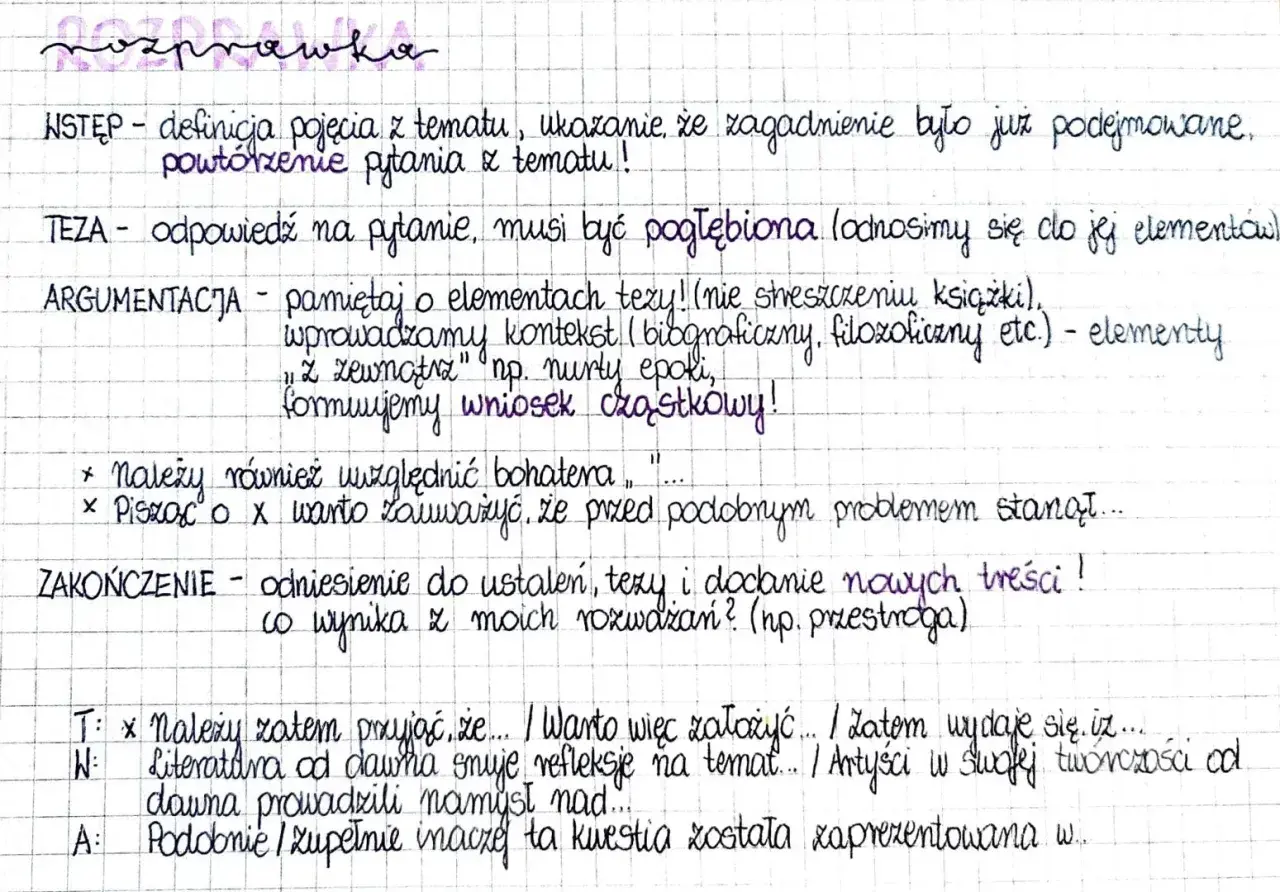 ROZPRAWKA
rozprawka
WSTĘP - definicja pojęcia z tematu, ukazanie, że zagadnienie było już podejmowane,
powtórzenie pytania z tematu!
TEZA - odpowiedź na pytanie, musi być pogłębiona (odnosimy się do jej elementów)
ARGUMENTACJA - pamiętaj o elementach tezy! (nie streszczeniu książki),
wprowadzamy kontekst (biograficzny, filozoficzny etc.) - elementy
„z zewnątrz" np. nurty epoki,
formułujemy wniosek cząstkowy!
x Należy również uwzględnić bohatera „ "...
x Pisząc o x warto zauważyć, że przed podobnym problemem stanął...
ZAKOŃCZENIE - odniesienie do ustaleń, tezy i dodanie nowych treści!
co wynika z moich rozważań? (np. przestroga)
T: x Należy zatem przyjąć, że... / Warto więc założyć... / Zatem wydaje się, iż...
W: Literatura od dawna snuje refleksje na temat... / Artyści w swojej twórczości od
dawna prowadzili namysł nad...
A: Podobnie / zupełnie inaczej ta kwestia została zaprezentowana w...